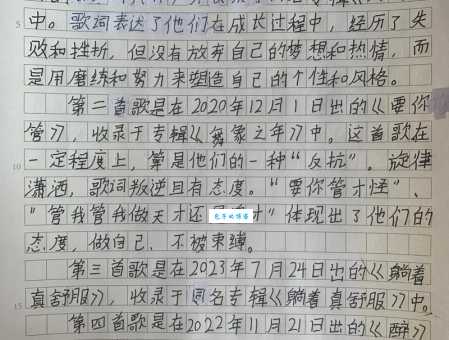 中。歌词表达了他们在成长过程中，经历了失
败和挫折，但没有放弃自己的梦想和热情，而
是用磨练和努力来塑造自己的个性和风格。
第二首歌是在2020年12月1日出的《要你
管》，收录于专辑《万象之年》中。这首歌在
一定程度上，算是他们的一种“反抗”。旋律
潇洒，歌词叛逆且有态度。“要你管才怪”、
“管我管我做天才还是 才”体现出了他们的
态度，做自己、不被束缚。
第三首歌是在2023年7月24日出的《躺着
真舒服》，收录于同名专辑《躺着真舒服》中。
第四首歌是在2022年11月21日出的《醉》
5
10
15